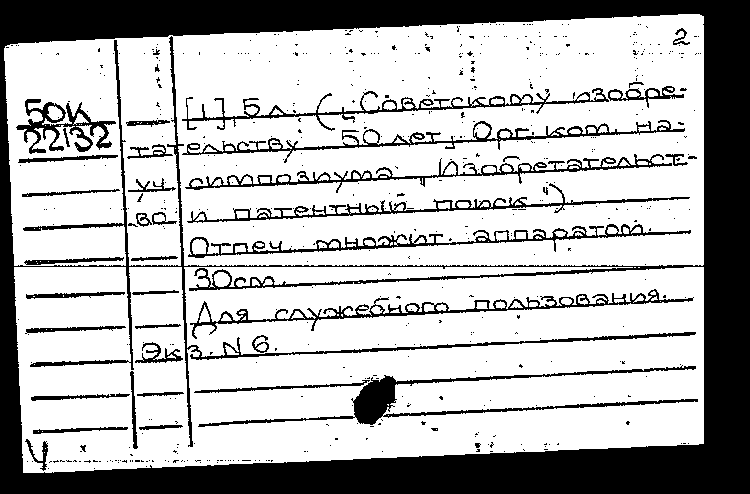 2
50К
22132
[1], 5 л. („Советскому изобре-
тательству 50 лет„. Орг. ком. на-
уч. симпозиума „Изобретательст-
во и патентный поиск").
Отпеч. множит. аппаратом.
30см.
Для служебного пользования.
Экз. N 6.
Ч